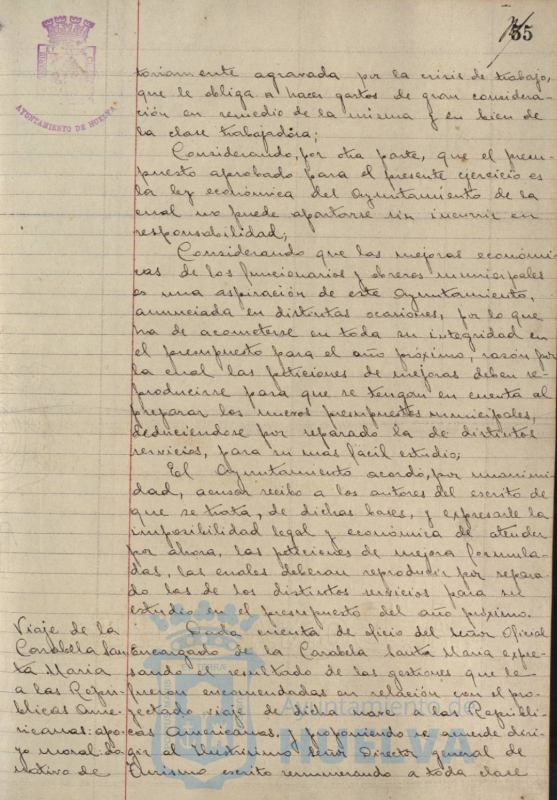 55
AYUNTAMIENTO DE HUELVA
toriamente agravada por la crisis de trabajo,
que le obliga a hacer gastos de gran considera-
ción en remedio de la misma y en bien de
la clase trabajadora;
Considerando, por otra parte, que el presu-
puesto aprobado para el presente ejercicio es
la ley económica del Ayuntamiento de la
cual no puede apartarse sin incurrir en
responsabilidad;
Considerando que las mejoras económi-
cas de los funcionarios y obreros municipales
es una aspiración de este Ayuntamiento,
anunciada en distintas ocasiones, por lo que
ha de acometerse en toda su integridad en
el presupuesto para el año próximo, razón por
la cual las peticiones de mejoras deben re-
producirse para que se tengan en cuenta al
preparar los nuevos presupuestos municipales,
deduciéndose por separado la de distintos
servicios, para su más fácil estudio;
El Ayuntamiento acordó, por unanimi-
dad, acusar recibo a los autores del escrito de
que se trata, de dichas bases, y expresarle la
imposibilidad legal y económica de atender
por ahora, las peticiones de mejora formula-
das, las cuales deberán reproducir por separa-
do las de los distintos servicios para su
estudio en el presupuesto del año próximo.
Viaje de la
Carabella San-
ta Maria
a las Repú-
blicas Ame-
ricanas: apo-
yo moral: Da
motivo de
Dada cuenta de oficio del señor Oficial
Encargado de la Carabela Santa Maria expre-
sando el resultado de las gestiones que le
fueron encomendadas en relación con el pro-
yectado viaje de dicha nave a las Repúbli-
cas Americanas, y proponiendo se acuerde diri-
gir al Ilustrísimo Señor Director general de
Turismo escrito renunciando a toda clase
Ayuntamiento de
HUELVA